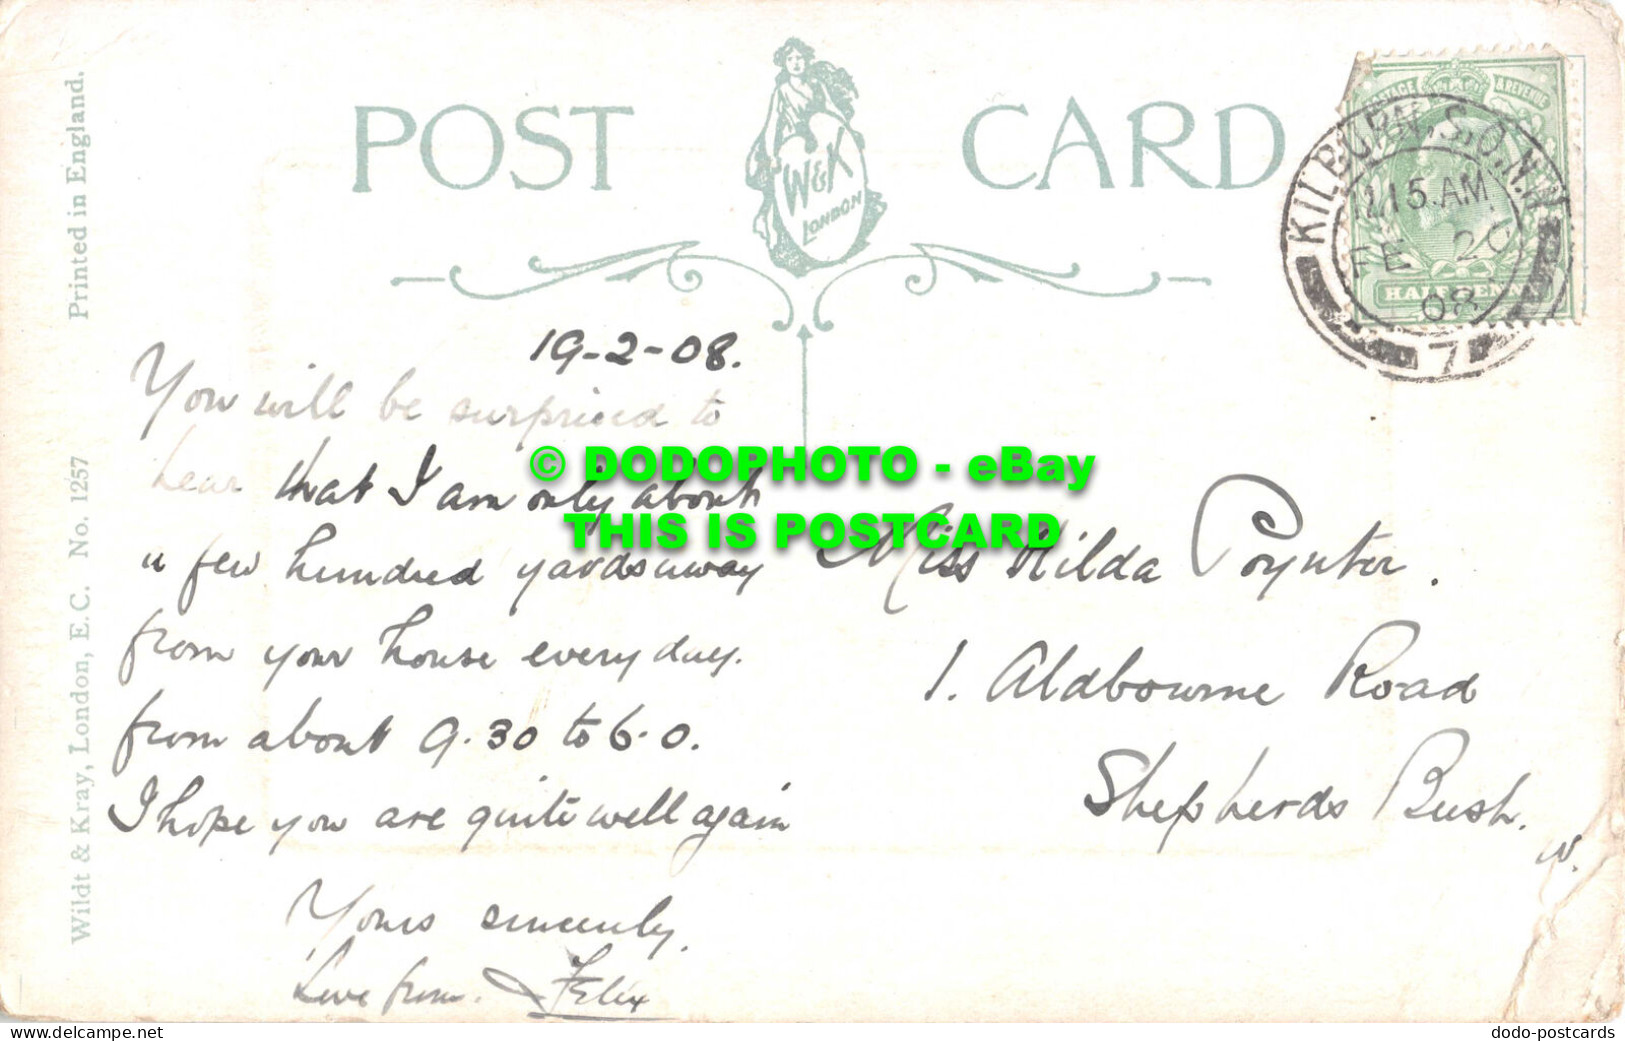 POST CARD
W&K
LONDON
Printed in England.
Wildt & Kray, London, E.C. No. 1257
POSTAGE & REVENUE
HALFPENNY
KILBURN. S.O. N.W.
11.15.AM
FE 20
08
7
19-2-08.
You will be surprised to
hear that I am only about
a few hundred yards away
from your house every day.
from about 9.30 to 6.0.
I hope you are quite well again
Yours sincerely,
Love from. Felix
Miss Hilda Poynter.
1. Aldbourne Road
Shepherds Bush.
W.
© DODOPHOTO - eBay
THIS IS POSTCARD
www.delcampe.net
dodo-postcards